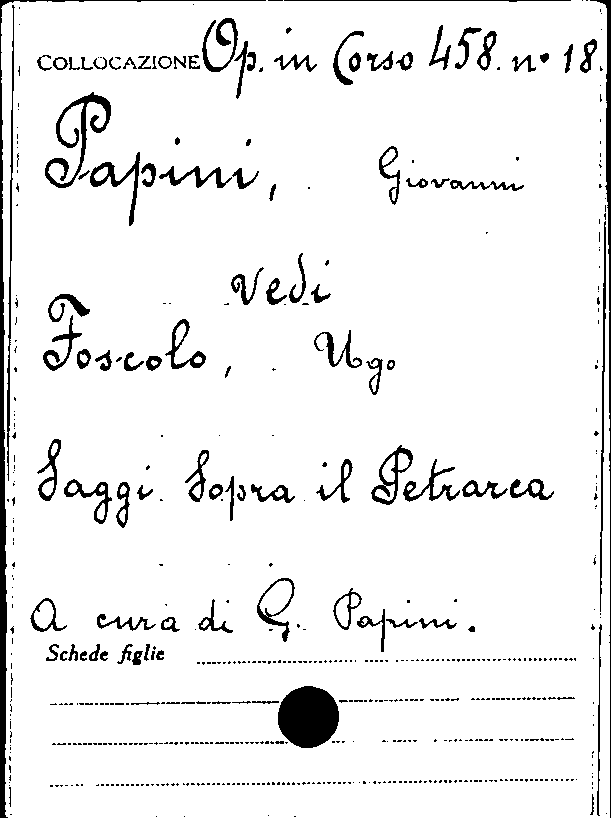 COLLOCAZIONE Op. in Corso 458. nº 18.
Papini, Giovanni
Vedi
Foscolo, Ugo
Saggi Sopra il Petrarca
A cura di G. Papini.
Schede figlie